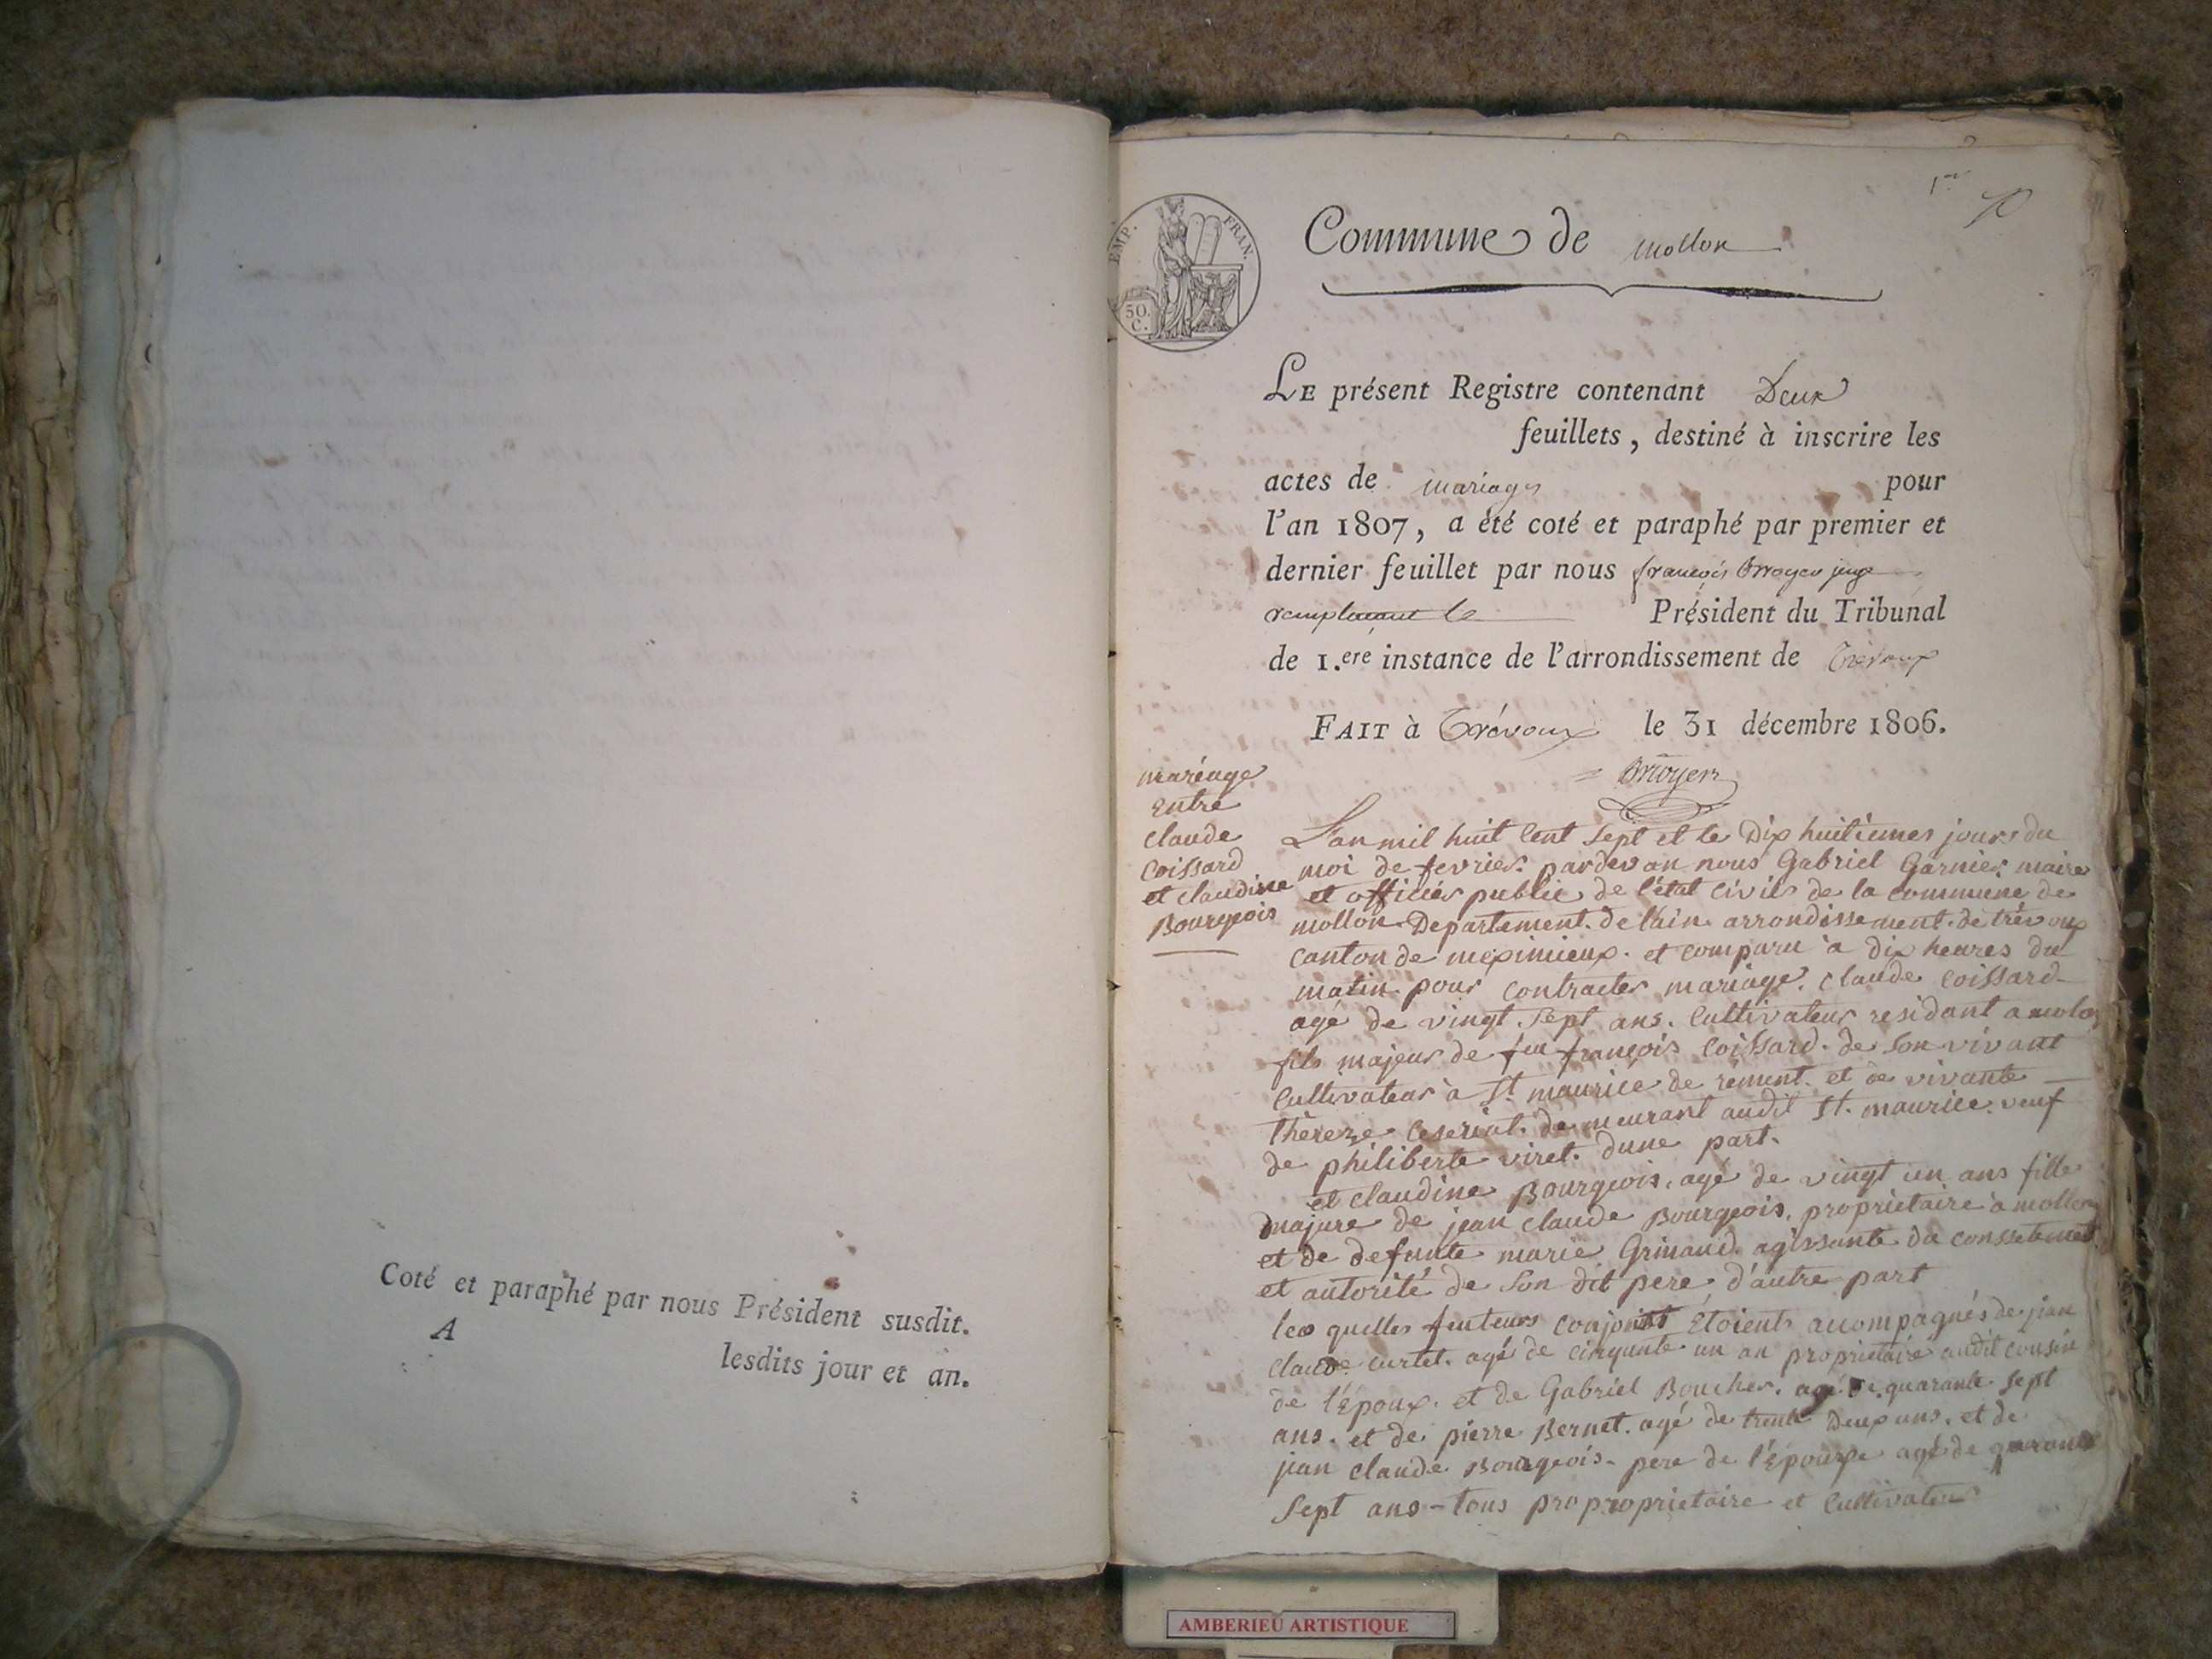 Coté et paraphé par nous Président susdit.
A
lesdits jour et an.
1er
EMP. FRAN.
50.
C.
Commune de mollon
LE présent Registre contenant Deux
feuillets, destiné à inscrire les
actes de mariages pour
l'an 1807, a été coté et paraphé par premier et
dernier feuillet par nous françois juge
remplaçant le Président du Tribunal
de 1.ere instance de l'arrondissement de Trévoux
FAIT à Trévoux le 31 décembre 1806.
mariage
entre
claude
Coissard
et claudine
Bourgeois
L'an mil huit Cent Sept et le Dix huitiemes jours du
moi de fevrier. pardevan nous Gabriel Garnier maire
et officiés public de l'état Civils de la commune de
mollon Departement. de l'ain arrondissement. de trévoux
Canton de meximieux. et comparu a dix heures du
matin pour Contracter mariage. Claude Coissard
agé de vingt. Sept ans. Cultivateur residant a molon
fils majeur de feu françois Coissard. de Son vivant
Cultivateur à St maurice de rément. et de vivante
théreze demeurant audit St. maurice. veuf
de philiberte viret. dune part.
et Claudine Bourgeois, agé de vingt un ans fille
majure de jean Claude Bourgeois, proprietaire a mollon
et de defunte marie Grinand agissante du
et autorité de Son dit pere, d'autre part
les quelles futeurs Conjoint Etoient accompagnés de jean
Claude curtet. agé de cinquante un an proprietaire audit cousin
de l'époux. et de Gabriel Boucher. agé de quarante Sept
ans. et de pierre Bernet. agé de trente Deux ans. et de
jean Claude Bourgeois pere de l'épouxe agé de quarante
Sept ans - tous proproprietaire et Cultivateur
AMBERIEU ARTISTIQUE